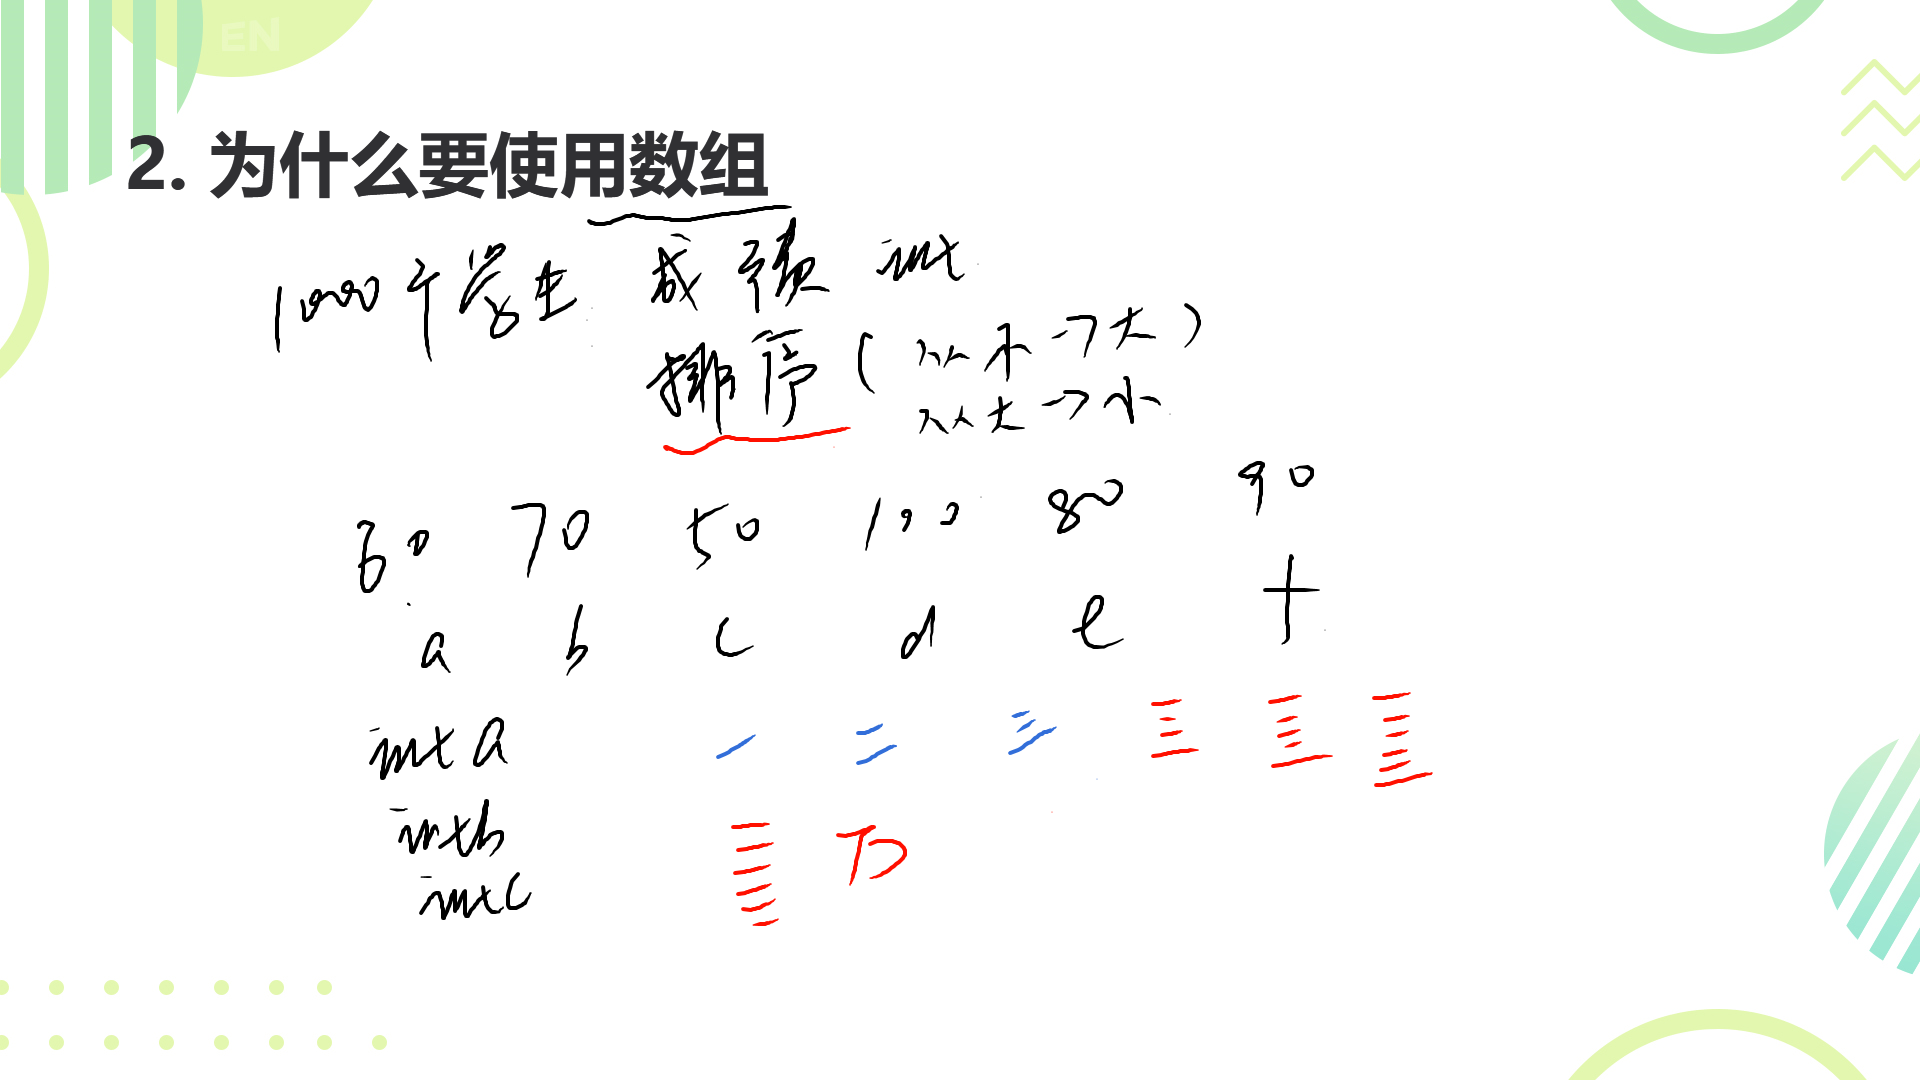 EN
2. 为什么要使用数组
1000个学生 成绩 int
排序(从小→大)
从大→小
60 70 50 100 80 90
a b c d e f
int a 一 二 三
int b 万
int c